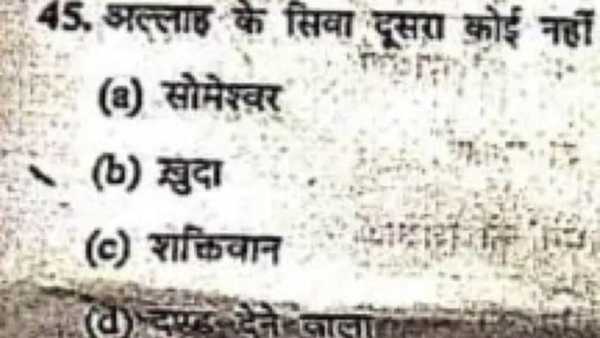 45. अल्लाह के सिवा दूसरा कोई नहीं
(a) सोमेश्वर
(b) ख़ुदा
(c) शक्तिवान
(d) दण्ड देने वाला